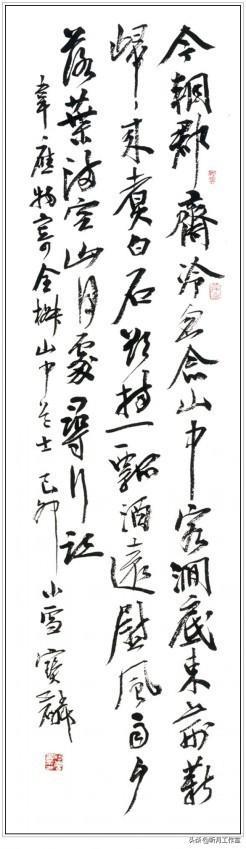 今朝郡齋冷忽念山中客澗底束荊薪
歸來煮白石欲持一瓢酒遠慰風雨夕
落葉滿空山何處尋行迹
韋應物寄全椒山中道士 己卯小雪 寶麟
头条@昕月工作室